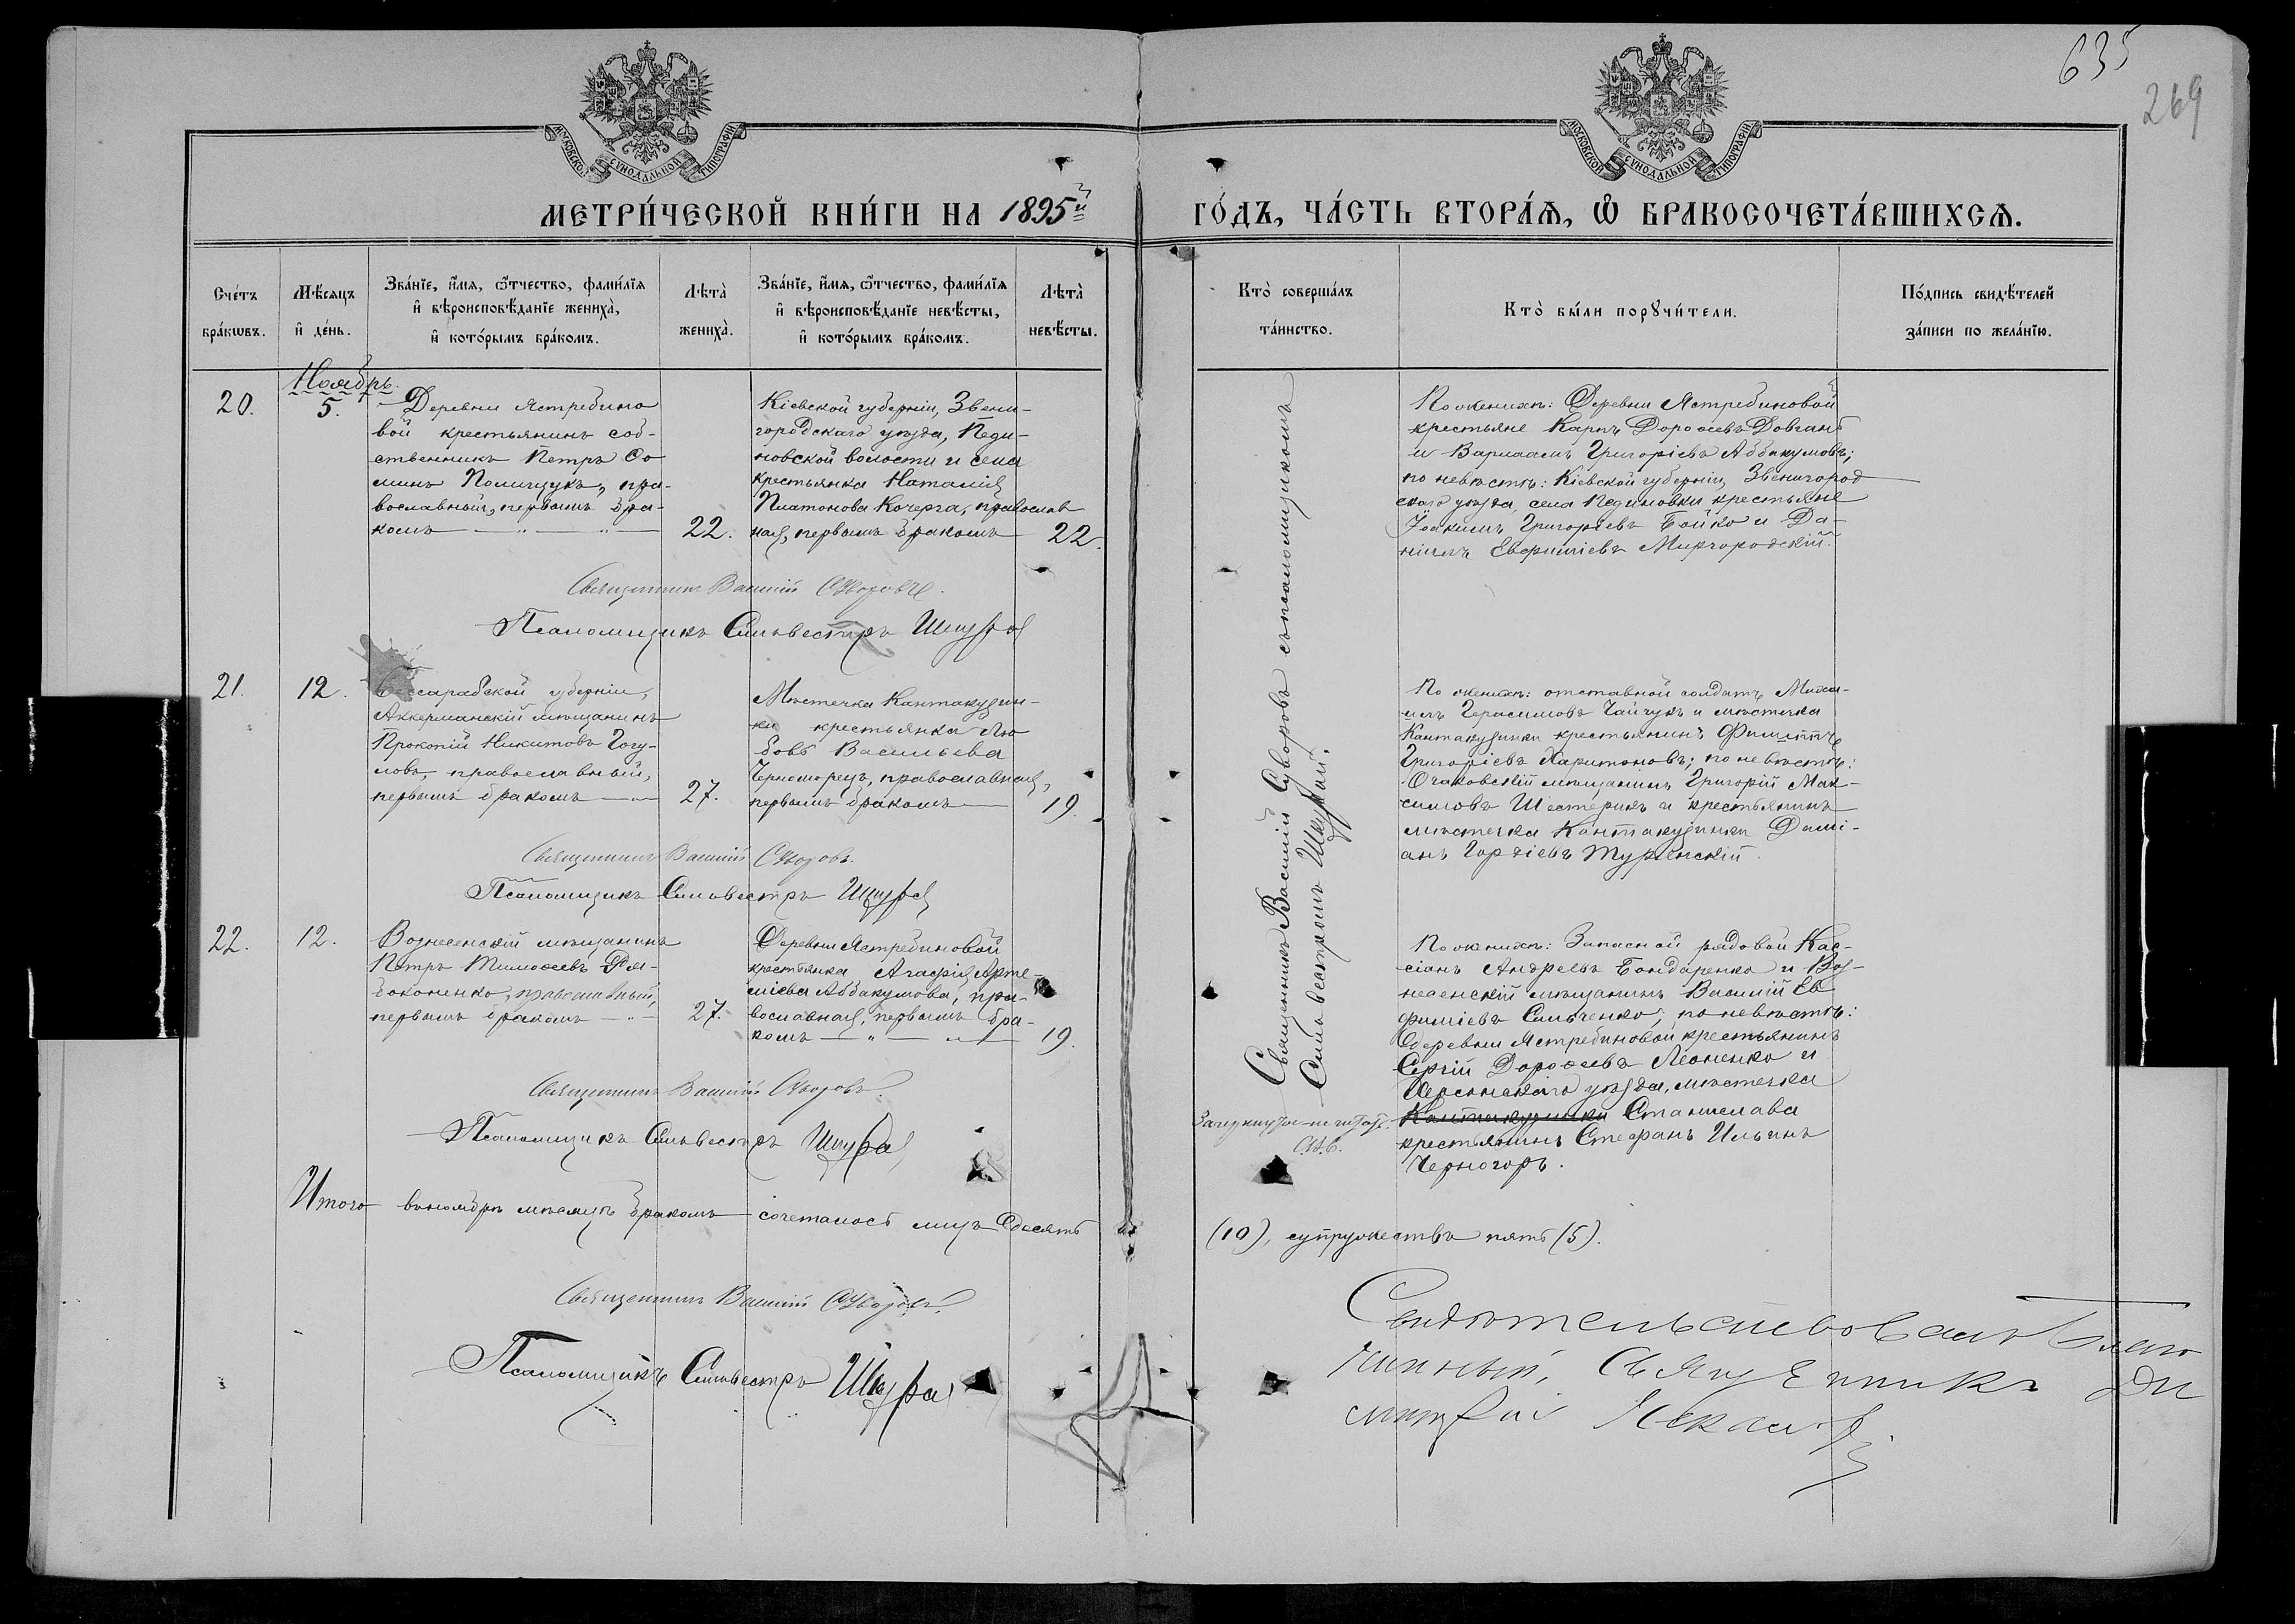 635
269
МОСКОВСКОЙ СУНОДАЛЬНОЙ ТИПОГРАФІИ
МОСКОВСКОЙ СУНОДАЛЬНОЙ ТИПОГРАФІИ
МЕТРИ́ЧЕСКОЙ КНИ́ГИ НА 1895й
ГО́ДЪ, ЧА́СТЬ ВТОРА́Ѧ, Ѡ҆ БРАКОСОЧЕТА́ВШИХСѦ.
Сче́тъ
бра́кѡвъ.
Мѣ́сяцъ
и҆ де́нь.
Зва́нїе, и҆́мѧ, ѻ҆́тчество, фами́лїѧ
и҆ вѣроисповѣ́данїе жениха̀,
и҆ кото́рымъ бра́комъ.
Лѣта̀
жениха̀.
Зва́нїе, и҆́мѧ, ѻ҆́тчество, фами́лїѧ
и҆ вѣроисповѣ́данїе невѣ́сты,
и҆ кото́рымъ бра́комъ.
Лѣта̀
невѣ́сты.
Кто̀ соверша́лъ
та́инство.
Кто̀ бы́ли порꙋчи́тели.
По́дпись свидѣ́телей
за́писи по жела́нїю.
Ноябрь.
20.
5.
Деревни Ястребино
вой крестьянинъ соб-
ственникъ Петръ Ѳо
минъ Полищукъ, пра-
вославный, первымъ бра-
комъ
22.
Кіевской губерніи, Звени-
городскаго уѣзда, Педи-
новской волости и села
крестьянка Наталія
Платонова Кочерга, православ
ная, первымъ бракомъ
22.
По женихѣ: Деревни Ястребиновой
крестьяне Карпъ Дороѳеевъ Довгань
и Варлаамъ Григоріевъ Аввакумовъ;
по невѣстѣ: Кіевской губерніи, Звенигород
скаго уѣзда, села Пединовки крестьяне
Іоакимъ Григоріевъ Бойко и Да-
ніилъ Евфиміевъ Миргородскій.
Священникъ Василій Суворовъ.
Псаломщикъ Сильвестръ Шкура
21.
12.
Бессарабской губерніи,
Аккерманскій мѣщанинъ
Прокопій Никитовъ Гогу-
ловъ, православный,
первымъ бракомъ
27.
Мѣстечка Кантакузин-
ки крестьянка Лю
бовь Васильева
Черноморецъ, православная,
первымъ бракомъ
19.
По женихѣ: отставной солдатъ Миха-
илъ Герасимовъ Чайчукъ и мѣстечка
Кантакузинки крестьянинъ Филиппъ
Григоріевъ Харитоновъ; по невѣстѣ:
Очаковскій мѣщанинъ Григорій Мак-
симовъ Шестерикъ и крестьянинъ
мѣстечка Кантакузинки Дамі-
анъ Гордіевъ Туренскій.
Священникъ Василій Суворовъ.
Псаломщикъ Сильвестръ Шкура
22.
12.
Вознесенскій мѣщанинъ
Петръ Тимоѳеевъ
православный,
первымъ бракомъ
27.
Деревни Ястребиновой
крестьянка Агафія Арте-
міева Аввакумова, пра-
вославная, первымъ бра-
комъ
19.
По женихѣ: Запасной рядовой Кас-
сіанъ Андреевъ Бондаренко и Воз-
несенскій мѣщанинъ Василій Ев
фиміевъ Сильченко; по невѣстѣ:
деревни Ястребиновой крестьянинъ
Сергій Дороѳеевъ Леоненко и
Херсонскаго уѣзда, мѣстечка
Кантакузинки Станислава
крестьянинъ Стефанъ Ильинъ
Черногоръ.
Священникъ Василій Суворовъ съ псаломщикомъ
Сильвестромъ Шкурой.
Священникъ Василій Суворовъ.
Псаломщикъ Сильвестръ Шкура
Итого въ ноябрѣ мѣсяцѣ бракомъ сочеталось лицъ десять
(10), супружествъ пять (5).
Священникъ Василій Суворовъ.
Псаломщикъ Сильвестръ Шкура
Свидѣтельствовалъ Благо
чинный, Священникъ Ди
митрій